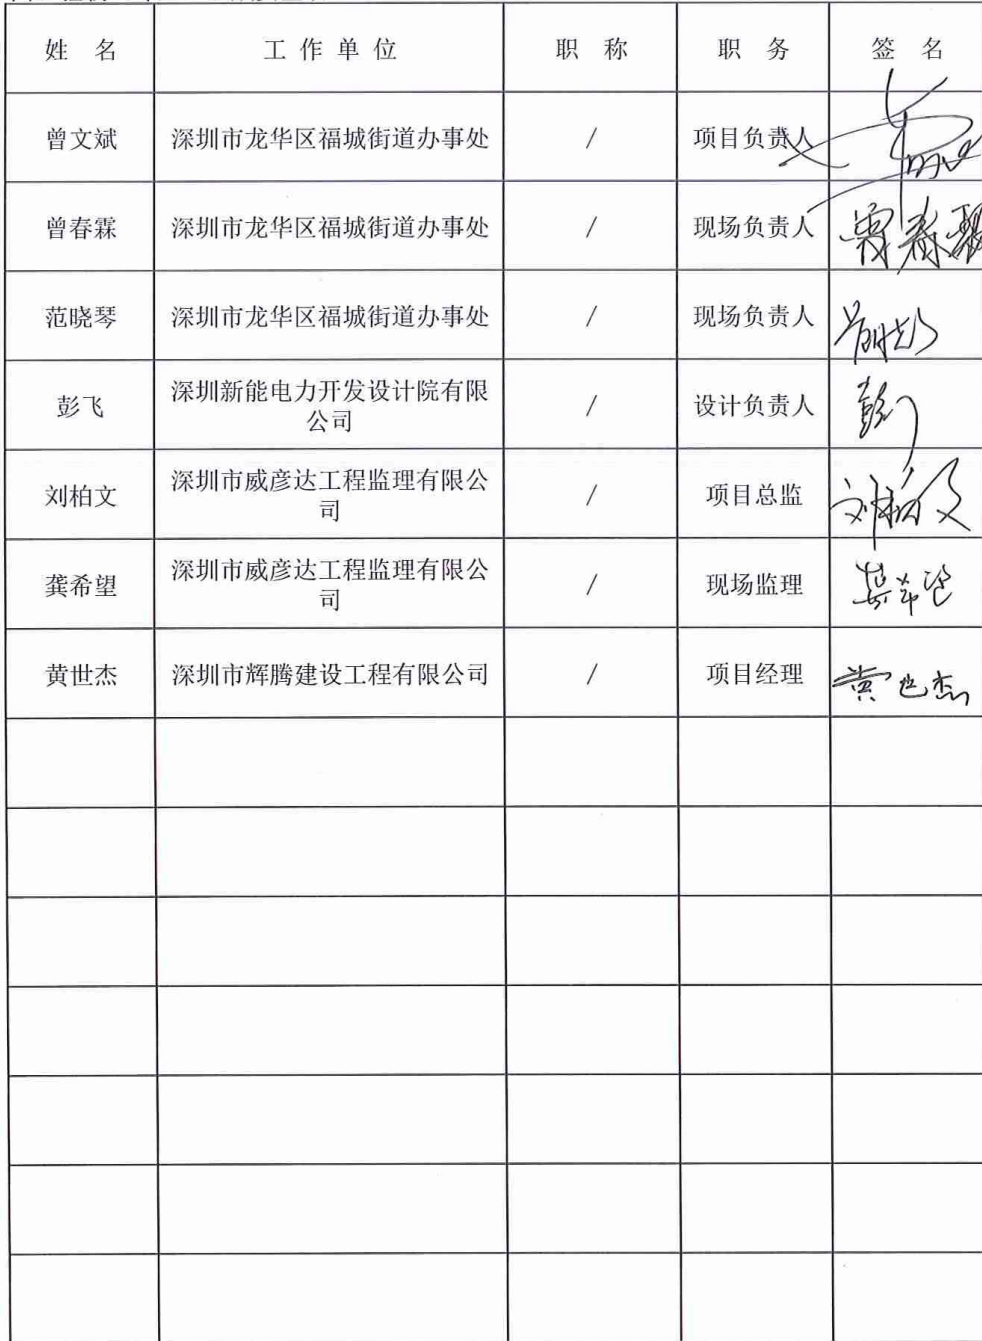 姓 名 工 作 单 位 职 称 职 务 签 名
曾文斌 深圳市龙华区福城街道办事处 / 项目负责人
曾春霖 深圳市龙华区福城街道办事处 / 现场负责人 曾春霖
范晓琴 深圳市龙华区福城街道办事处 / 现场负责人
彭飞 深圳新能电力开发设计院有限
公司 / 设计负责人 彭飞
刘柏文 深圳市威彦达工程监理有限公
司 / 项目总监 刘柏文
龚希望 深圳市威彦达工程监理有限公
司 / 现场监理 龚希望
黄世杰 深圳市辉腾建设工程有限公司 / 项目经理 黄世杰